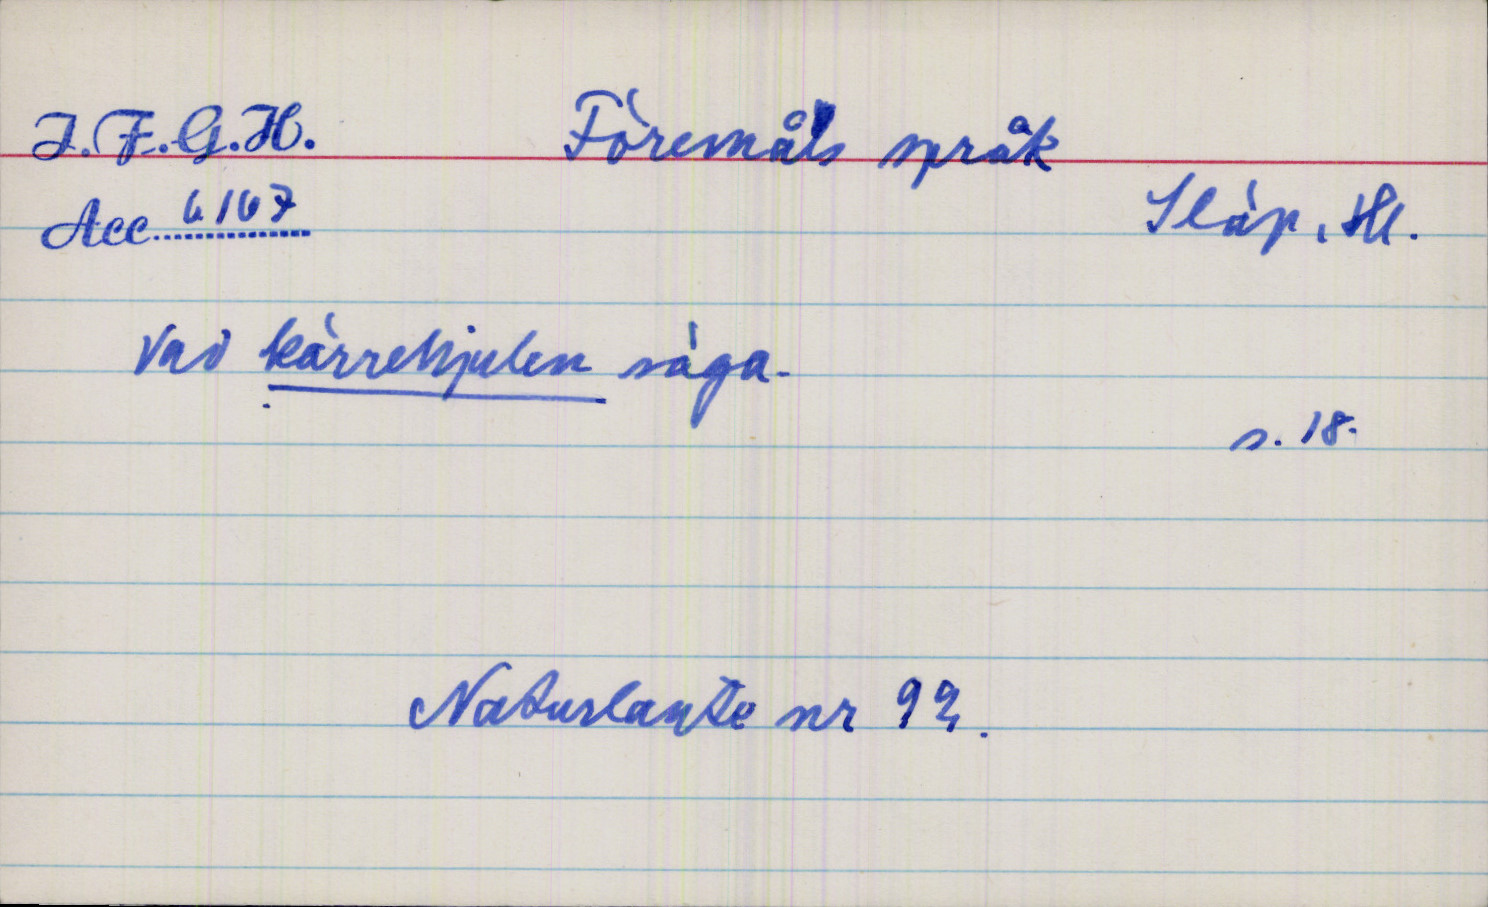 I.F.G.H.
Föremåls språk
Acc. 6167
Släp, Hl.
Vad kärrehjulen säga.
s. 18.
Naturlaute nr 92.